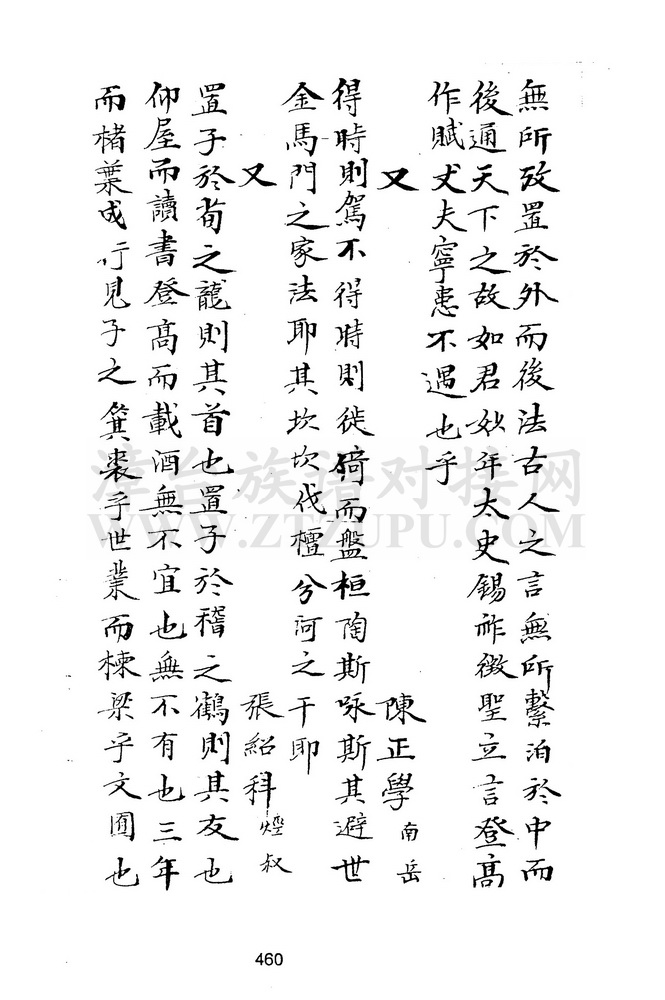 無所攷置於外而後法古人之言無所繫泊於中而
後通天下之故如君妙年太史錫祚徵聖立言登高
作賦丈夫寧患不遇也乎
又 陳正學 南岳
得時則駕不得時則徙倚而盤桓陶斯咏斯其避世
金馬門之家法耶其坎坎伐檀兮河之干耶
又 張紹科 煙叔
置子於荀之龍則其首也置子於稽之鶴則其友也
仰屋而讀書登高而載酒無不宜也無不有也三年
而楮葉成行見子之箕裘乎世業而棟梁乎文囿也
漳台族谱对接网
WWW.ZTZUPU.COM
460